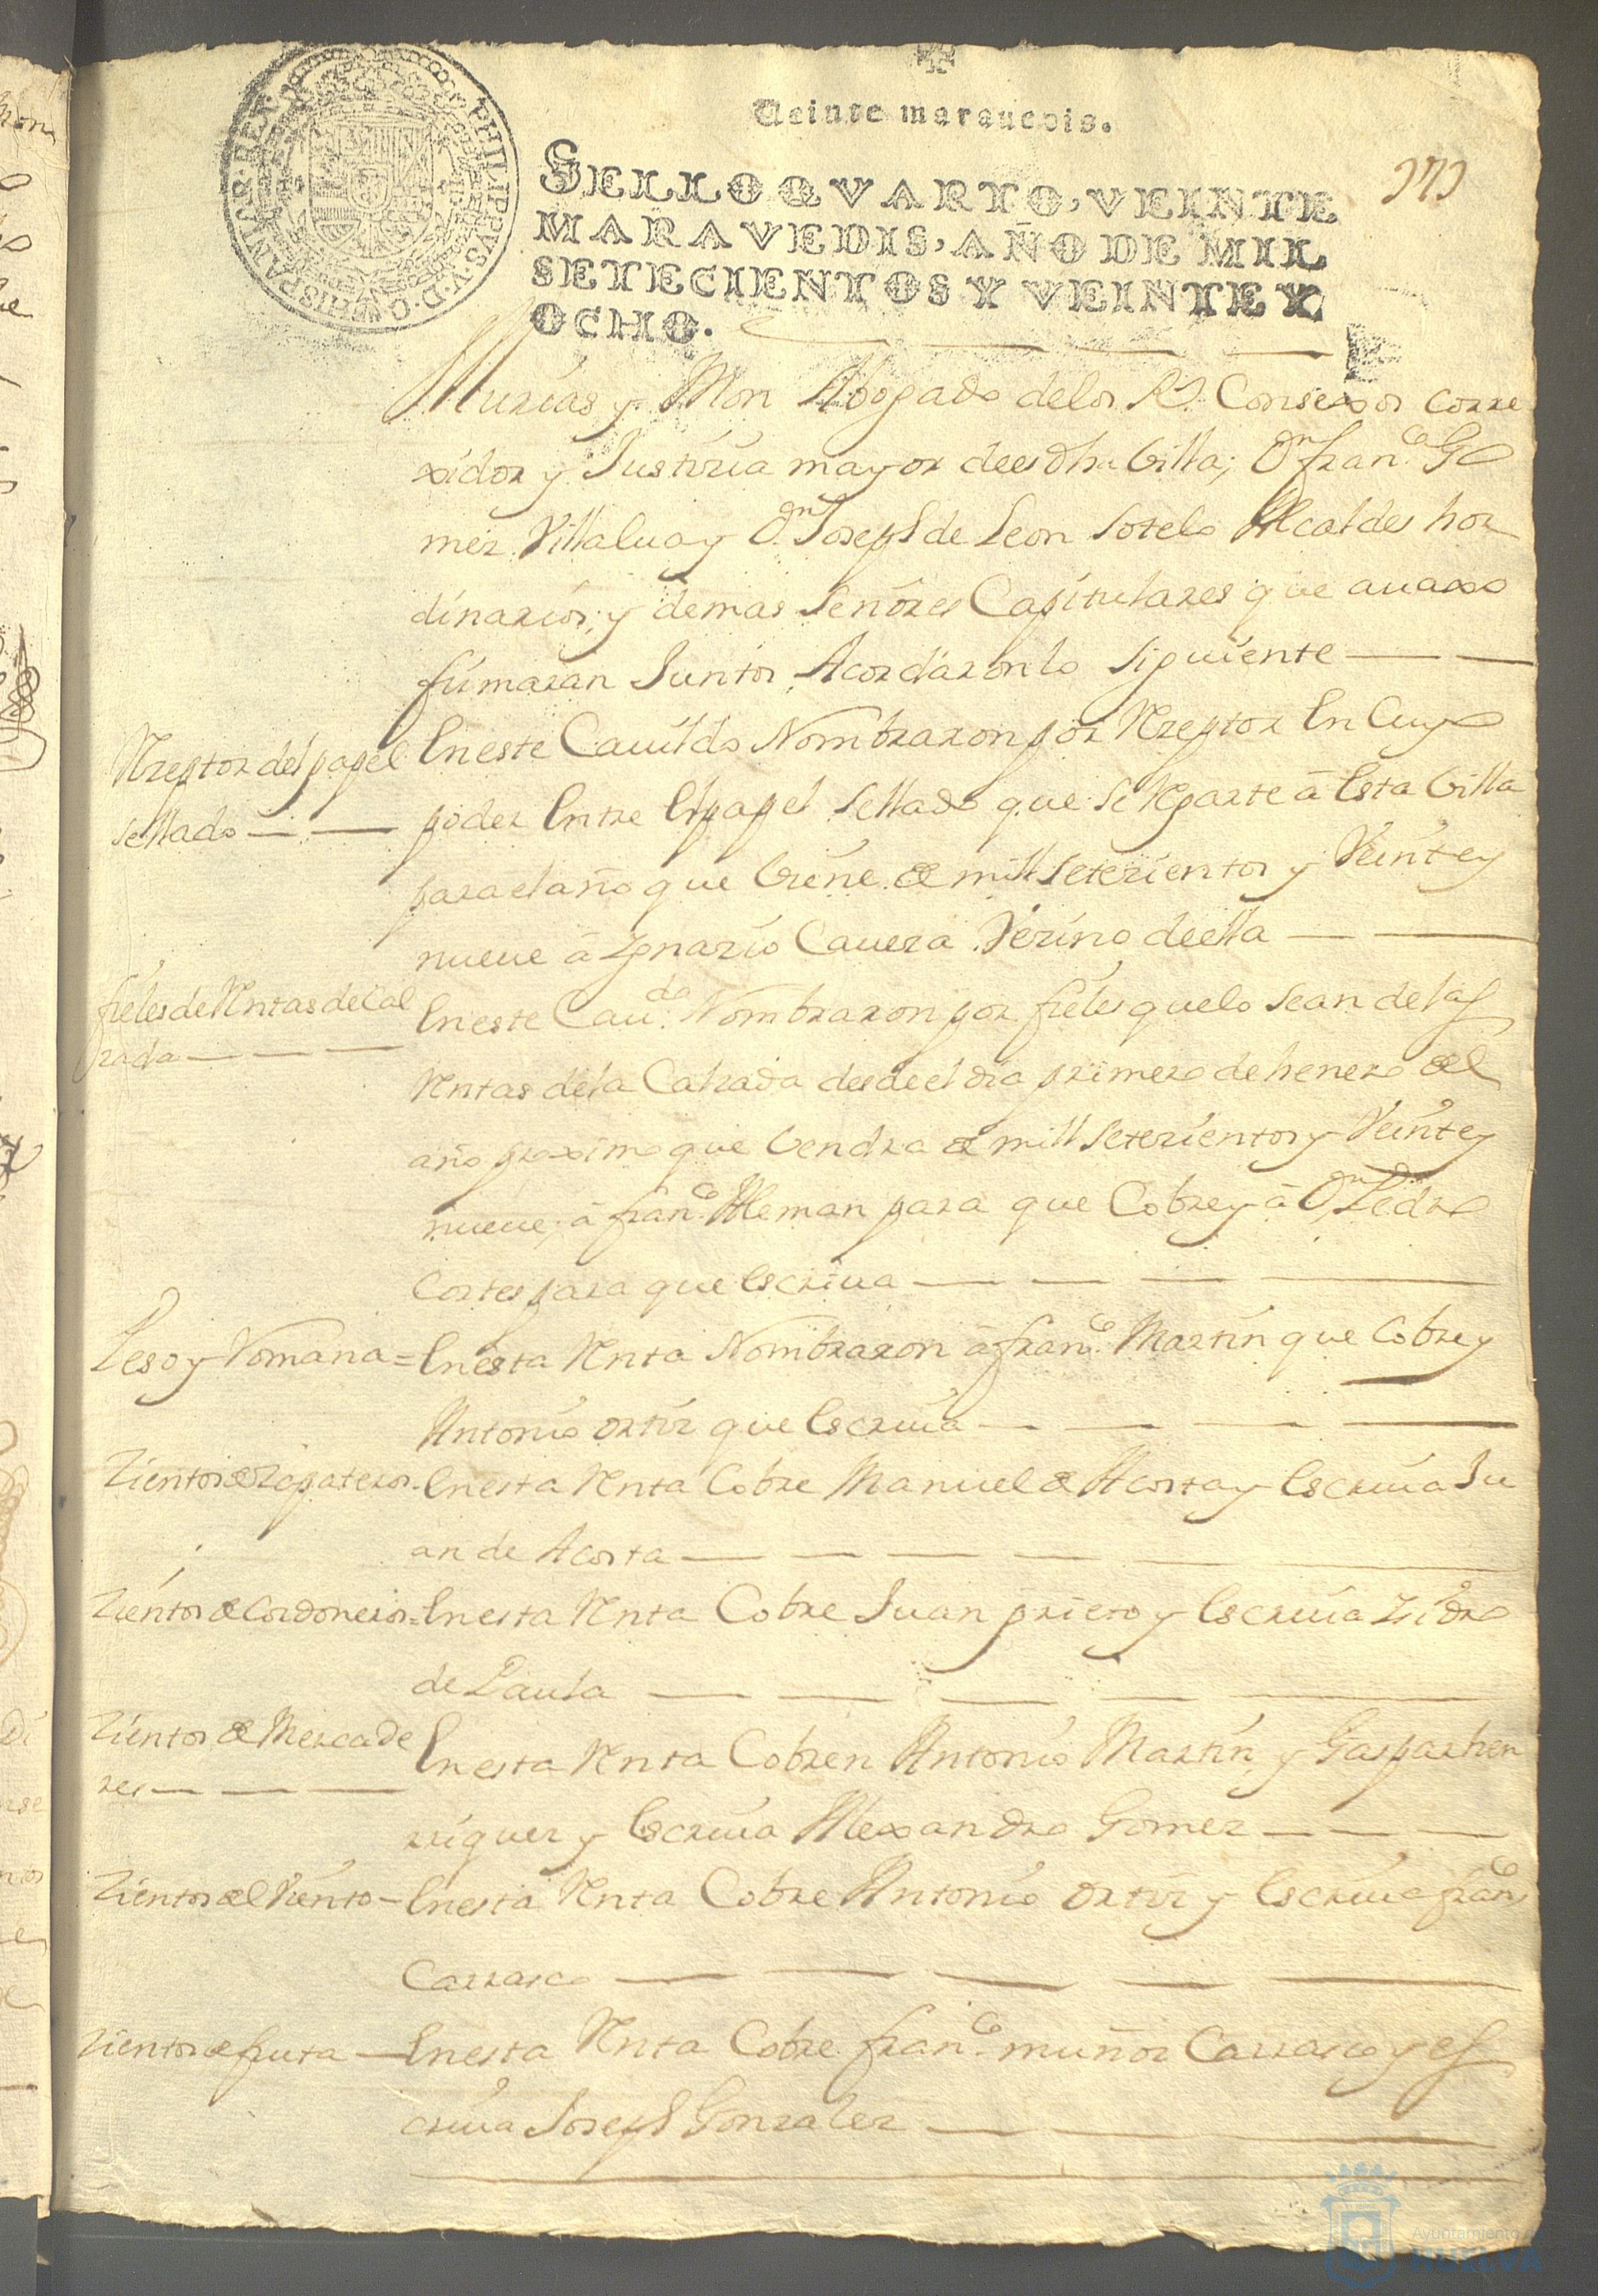 Veinte marauedis.
SELLO QVARTO, VEINTE
MARAVEDIS, AÑO DE MIL
SETECIENTOS Y VEINTE Y
OCHO.
PHILIPPVS·V·D·G·HISPANIAR·REX
Murias y Mon Abogado delos Rs. Consexos corre
xidor y Justizia mayor deesdha Villa; Dn. franco. Go
mez Villalua y Dn. Joseph de Leon Sotelo Alcaldes hor
dinarios; y demas Señores Capitulares que auaxo
firmaran Juntos Acordaron lo siguiente
Rzeptor del papel
sellado
En este Cauildo Nombraron por Rzeptor En Cuyo
poder Entre El papel Sellado que se Reparte â Esta Villa
para el año que viene de mill setezientos y Veinte y
nueue â Ygnazio Cauera Vezino deella
fieles de Rentas de Cal
zada
En este Caudo. Nombraron por fieles quelo Sean de las
Rentas dela Calzada desde el dia primero de henero del
año proximo que Vendra de mill setezientos y Veinte y
nueue, â franco. Aleman para que Cobre y â Dn. Pedro
Cortes para que Escriua
Peso y Romana =
En esta Renta Nombraron â franco. Martin que Cobre y
Antonio ortiz que Escriua
Zientos de Zapateros
En esta Renta Cobre Manuel de Acosta y Escriua Ju
an de Acosta
Zientos de Cordoneros =
En esta Renta Cobre Juan prieto y Escriua Ysidro
de Paula
Zientos de Mercade
res
En esta Renta Cobren Antonio Martin, y Gaspar hen
rriquez y Escriua Alexandro Gomez
Zientos del Viento
En esta Renta Cobre Antonio ortiz y Escriua franco.
Carrasco
Zientos de fruta
En esta Renta Cobre franco. muñoz Carrasco y es
criua Joseph Gonzalez
Ayuntamiento de
HUELVA